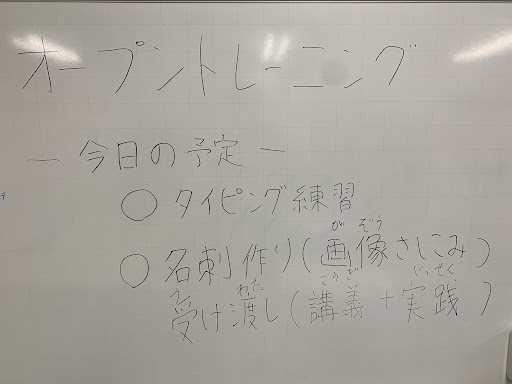 オープントレーニング
― 今日の予定 ―
○ タイピング練習
がぞう
○ 名刺作り(画像さしこみ)
う わた こうぎ じっせん
受け渡し(講義+実践)